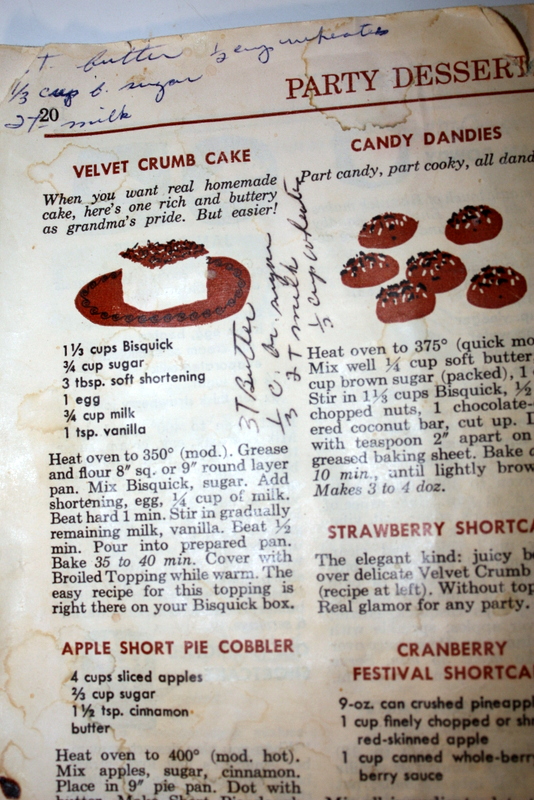 T. butter ½ cup wheaties
⅓ cup b. sugar
2 T milk
20
PARTY DESSERT
VELVET CRUMB CAKE
When you want real homemade
cake, here's one rich and buttery
as grandma's pride. But easier!
1⅓ cups Bisquick
¾ cup sugar
3 tbsp. soft shortening
1 egg
¾ cup milk
1 tsp. vanilla
Heat oven to 350° (mod.). Grease
and flour 8" sq. or 9" round layer
pan. Mix Bisquick, sugar. Add
shortening, egg, ¼ cup of milk.
Beat hard 1 min. Stir in gradually
remaining milk, vanilla. Beat ½
min. Pour into prepared pan.
Bake 35 to 40 min. Cover with
Broiled Topping while warm. The
easy recipe for this topping is
right there on your Bisquick box.
APPLE SHORT PIE COBBLER
4 cups sliced apples
⅔ cup sugar
1½ tsp. cinnamon
butter
Heat oven to 400° (mod. hot).
Mix apples, sugar, cinnamon.
Place in 9" pie pan. Dot with
3 T Butter
⅓ c. Br. sugar
2 T milk
½ cup wheaties
CANDY DANDIES
Part candy, part cooky, all dand
Heat oven to 375° (quick mo
Mix well ¼ cup soft butter
cup brown sugar (packed), 1
Stir in 1⅓ cups Bisquick, ½
chopped nuts, 1 chocolate-
ered coconut bar, cut up. D
with teaspoon 2" apart on
greased baking sheet. Bake
10 min., until lightly brow
Makes 3 to 4 doz.
STRAWBERRY SHORTCA
The elegant kind: juicy b
over delicate Velvet Crumb
(recipe at left). Without top
Real glamor for any party.
CRANBERRY
FESTIVAL SHORTCA
9-oz. can crushed pineapp
1 cup finely chopped or sh
red-skinned apple
1 cup canned whole-berr
berry sauce